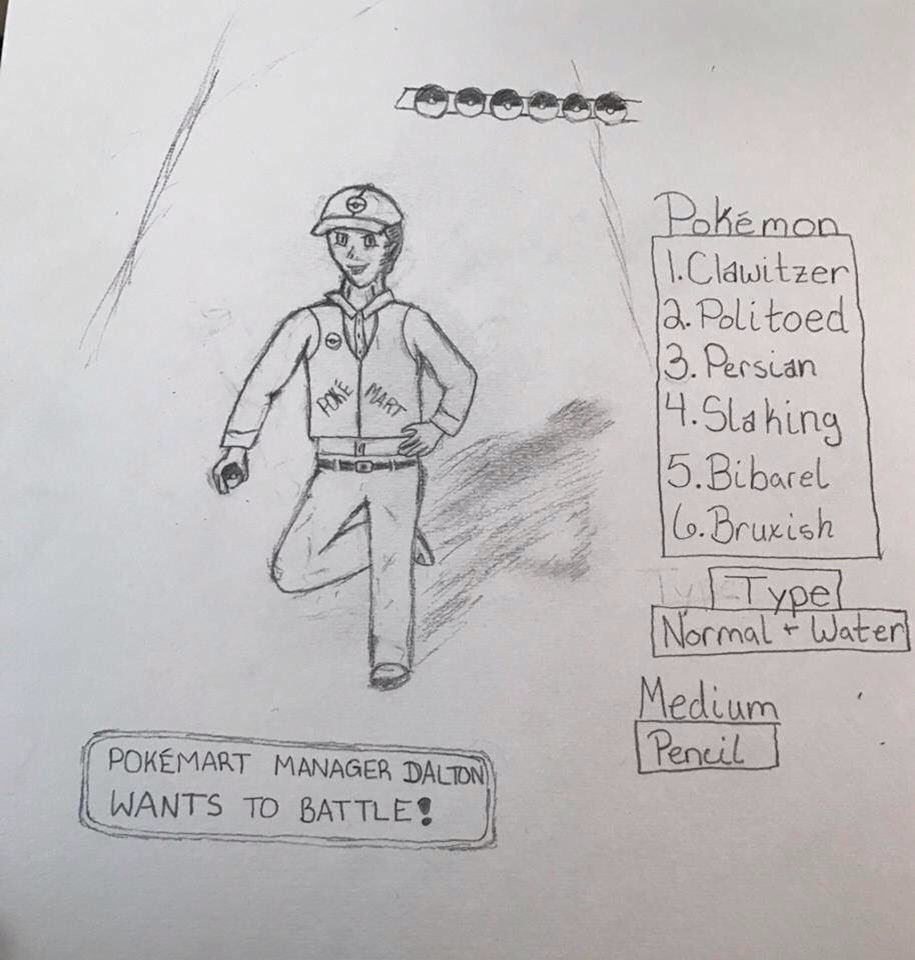 Pokémon
1. Clawitzer
2. Politoed
3. Persian
4. Slaking
5. Bibarel
6. Bruxish
Type
Normal + Water
Medium
Pencil
POKE MART
POKÉMART MANAGER DALTON
WANTS TO BATTLE!